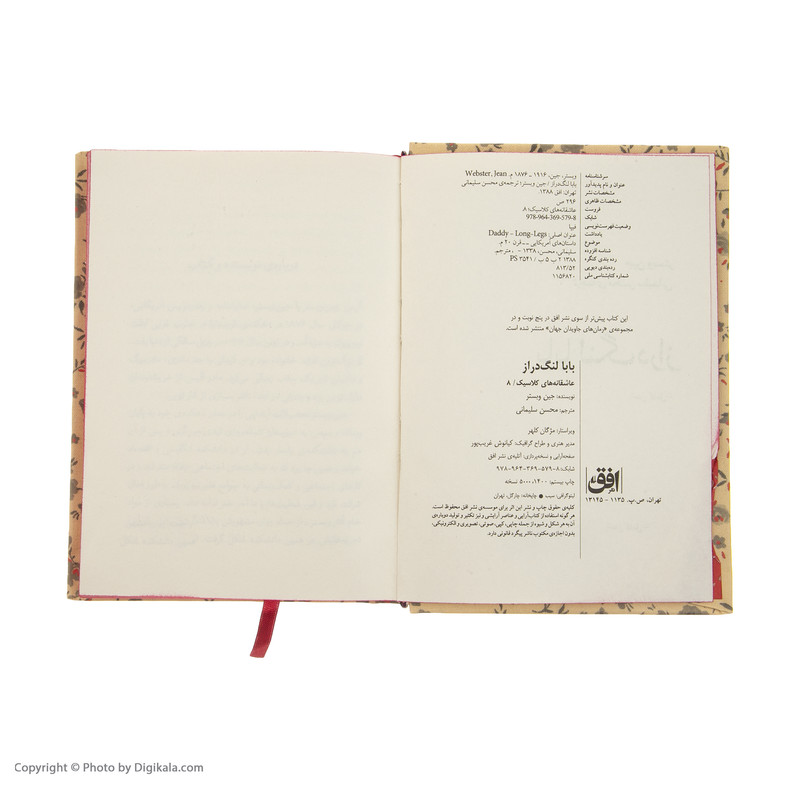 سرشناسنامه وبستر، جین، ۱۹۱۶ ـ ۱۸۷۶ م. Webster, Jean
عنوان و نام پدیدآور بابا لنگ‌دراز / جین وبستر؛ ترجمه‌ی محسن سلیمانی
مشخصات نشر تهران: افق ۱۳۸۸
مشخصات ظاهری ۲۹۶ ص
فروست عاشقانه‌های کلاسیک؛ ۸
شابک 978-964-369-579-8
وضعیت فهرست‌نویسی فیپا
یادداشت عنوان اصلی: Daddy – Long-Legs
موضوع داستان‌های آمریکایی ـ ـ قرن ۲۰ م.
شناسه افزوده سلیمانی، محسن، ۱۳۳۸ - ، مترجم.
رده بندی کنگره ۱۳۸۸ ۲ ب ۵ ب / PS ۳۵۴۱
رده‌بندی دیویی ۸۱۳/۵۲
شماره کتابشناسی ملی ۱۱۵۶۸۲۰
این کتاب پیش‌تر از سوی نشر افق در پنج نوبت و در
مجموعه‌ی «رمان‌های جاویدان جهان» منتشر شده است.
بابا لنگ‌دراز
عاشقانه‌های کلاسیک / ۸
نویسنده: جین وبستر
مترجم: محسن سلیمانی
ویراستار: مژگان کلهر
مدیر هنری و طراح گرافیک: کیانوش غریب‌پور
صفحه‌آرایی و نسخه‌پردازی: آتلیه‌ی نشر افق
شابک: ۸-۵۷۹-۳۶۹-۹۶۴-۹۷۸
چاپ بیستم: ۱۴۰۰، ۵۰۰۰ نسخه
لیتوگرافی: سیب ● چاپخانه: چاپگل، تهران
کلیه‌ی حقوق چاپ و نشر این اثر برای موسسه‌ی نشر افق محفوظ است.
هر گونه استفاده از کتاب‌آرایی و عناصر آرایشی و نیز تکثیر و تولید دوباره‌ی
آن به هر شکل و شیوه از جمله چاپی، کپی، صوتی، تصویری و الکترونیکی،
بدون اجازه‌ی مکتوب ناشر پیگرد قانونی دارد.
افق
تهران، ص.پ. ۱۱۳۵ - ۱۳۱۴۵
Copyright © Photo by Digikala.com